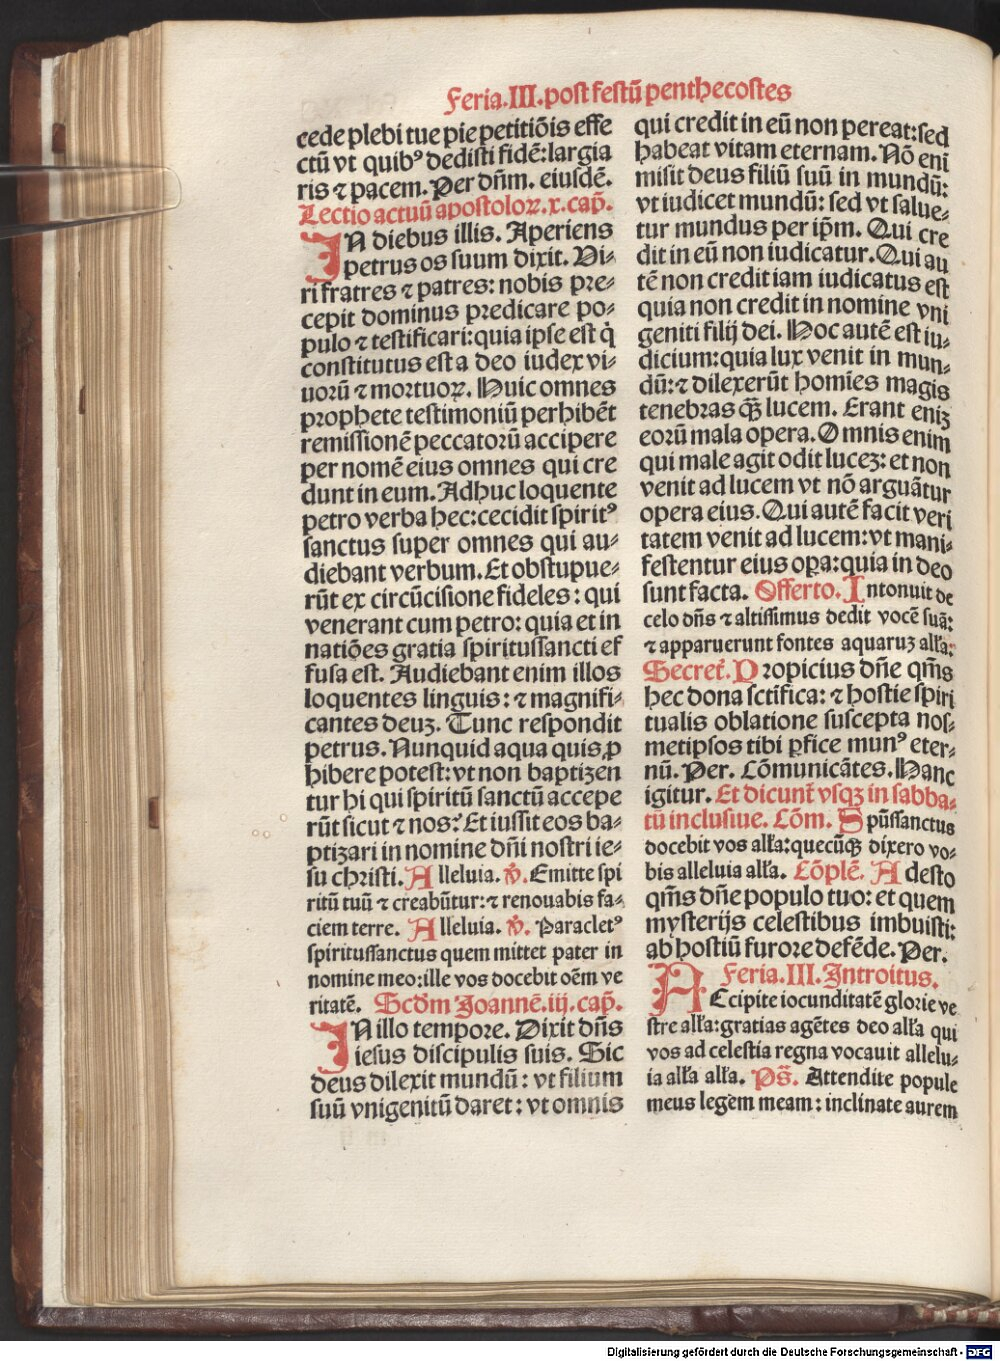 Feria.III.post festū penthecostes
cede plebi tue pie petitiōis effe
ctū vt quibꝰ dedisti fidē:largia
ris ⁊ pacem. Per dn̄m. eiusdē.
Lectio actuū apostoloꝝ.x.cap̄.
IN diebus illis. Aperiens
petrus os suum dixit. Vi⸗
ri fratres ⁊ patres: nobis pre⸗
cepit dominus predicare po⸗
pulo ⁊ testificari:quia ipse est q̇
constitutus est a deo iudex vi⸗
uorū ⁊ mortuoꝝ. Huic omnes
prophete testimoniū perhibēt
remissionē peccatorū accipere
per nomē eius omnes qui cre
dunt in eum. Adhuc loquente
petro verba hec:cecidit spiritꝰ
sanctus super omnes qui au⸗
diebant verbum. Et obstupue⸗
rūt ex circūcisione fideles: qui
venerant cum petro: quia et in
natiōes gratia spiritussancti ef
fusa est. Audiebant enim illos
loquentes linguis: ⁊ magnifi⸗
cantes deuꝫ. Tunc respondit
petrus. Nunquid aqua quis ꝓ
hibere potest: vt non baptizen
tur hi qui spiritū sanctū accepe
rūt sicut ⁊ nos? Et iussit eos ba⸗
ptizari in nomine dn̄i nostri ie⸗
su christi. Alleluia. v̄. Emitte spi
ritū tuū ⁊ creabūtur: ⁊ renouabis fa⸗
ciem terre. Alleluia. v̄. Paracletꝰ
spiritussanctus quem mittet pater in
nomine meo:ille vos docebit oēm ve
ritatē. Scd̄m Joannē.iij.cap̄.
IN illo tempore. Dixit dn̄s
iesus discipulis suis. Sic
deus dilexit mundū: vt filium
suū vnigenitū daret: vt omnis
qui credit in eū non pereat:sed
habeat vitam eternam. Nō eni
misit deus filiū suū in mundū:
vt iudicet mundū: sed vt salue⸗
tur mundus per ip̄m. Qui cre
dit in eū non iudicatur. Qui au
tē non credit iam iudicatus est
quia non credit in nomine vni
geniti filij dei. Hoc autē est iu⸗
dicium:quia lux venit in mun⸗
dū:⁊ dilexerūt homīes magis
tenebras q̄ꝫ lucem. Erant eniꝫ
eorū mala opera. Omnis enim
qui male agit odit luceꝫ: et non
venit ad lucem vt nō arguātur
opera eius. Qui autē facit veri
tatem venit ad lucem:vt mani⸗
festentur eius oꝑa:quia in deo
sunt facta. Offerto. Intonuit de
celo dn̄s ⁊ altissimus dedit vocē suā:
⁊ apparuerunt fontes aquaruꝫ alľa:
Secret̄. Propicius dn̄e qm̄s
hec dona sctīfica: ⁊ hostie spiri
tualis oblatione suscepta nos⸗
metipsos tibi ꝑfice munꝰ eter⸗
nū. Per. Cōmunicātes. Hanc
igitur. Et dicunt̄ vsqꝫ in sabba⸗
tū inclusiue. Cōm. Spūssanctus
docebit vos alľa:quecūqꝫ dixero vo⸗
bis alleluia alľa. Cōplē. Adesto
qm̄s dn̄e populo tuo: et quem
mysterijs celestibus imbuisti:
ab hostiū furore defēde. Per.
Feria.III.Introitus.
ACcipite iocunditatē glorie ve
stre alľa:gratias agētes deo alľa qui
vos ad celestia regna vocauit allelu⸗
ia alľa alľa. Ps̄. Attendite popule
meus legem meam: inclinate aurem
Digitalisierung gefördert durch die Deutsche Forschungsgemeinschaft - DFG